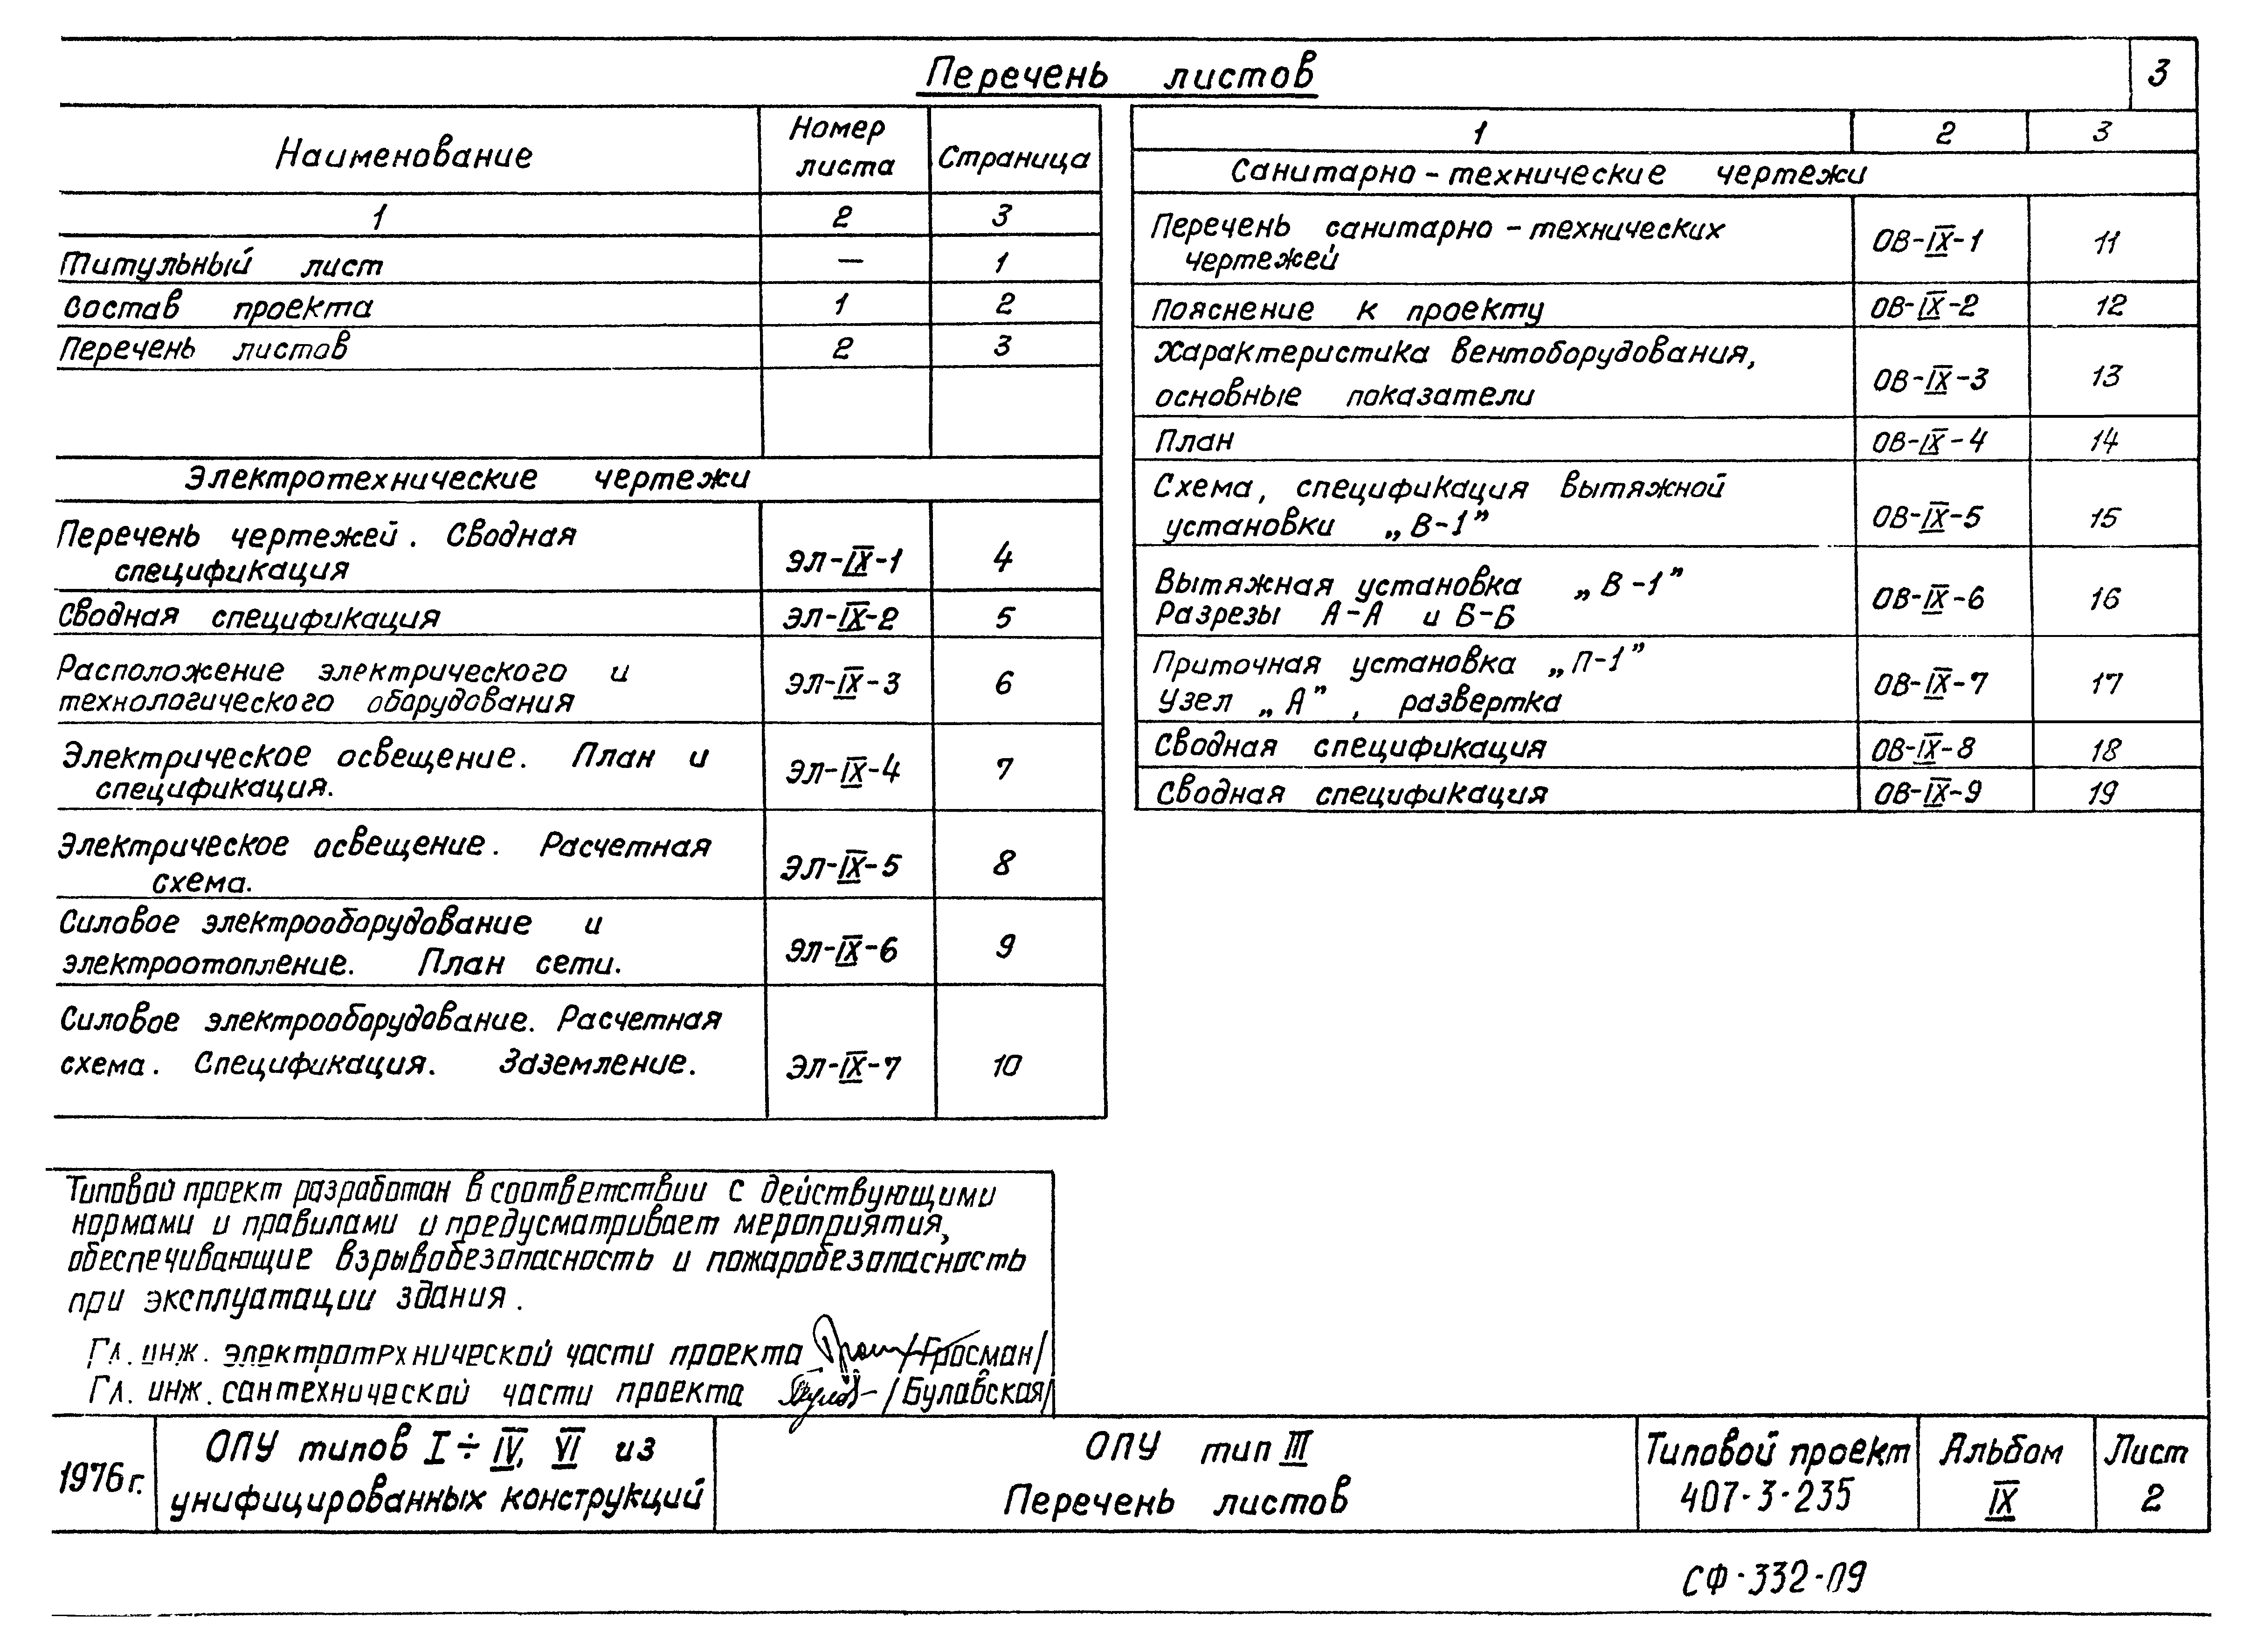 Перечень листов
3
Наименование
Номер листа
Страница
1 2 3
Титульный лист — 1
Состав проекта 1 2
Перечень листов 2 3
Электротехнические чертежи
Перечень чертежей. Сводная
спецификация ЭЛ-IX-1 4
Сводная спецификация ЭЛ-IX-2 5
Расположение электрического и
технологического оборудования ЭЛ-IX-3 6
Электрическое освещение. План и
спецификация. ЭЛ-IX-4 7
Электрическое освещение. Расчетная
схема. ЭЛ-IX-5 8
Силовое электрооборудование и
электроотопление. План сети. ЭЛ-IX-6 9
Силовое электрооборудование. Расчетная
схема. Спецификация. Заземление. ЭЛ-IX-7 10
1 2 3
Санитарно-технические чертежи
Перечень санитарно-технических
чертежей ОВ-IX-1 11
Пояснение к проекту ОВ-IX-2 12
Характеристика вентоборудования,
основные показатели ОВ-IX-3 13
План ОВ-IX-4 14
Схема, спецификация вытяжной
установки „В-1” ОВ-IX-5 15
Вытяжная установка „В-1”
Разрезы А-А и Б-Б ОВ-IX-6 16
Приточная установка „П-1”
Узел „А”, развертка ОВ-IX-7 17
Сводная спецификация ОВ-IX-8 18
Сводная спецификация ОВ-IX-9 19
Типовой проект разработан в соответствии с действующими
нормами и правилами и предусматривает мероприятия,
обеспечивающие взрывобезопасность и пожаробезопасность
при эксплуатации здания.
Гл. инж. электротехнической части проекта /Гросман/
Гл. инж. сантехнической части проекта /Булавская/
1976г.
ОПУ типов I÷IV, VI из
унифицированных конструкций
ОПУ тип III
Перечень листов
Типовой проект
407-3-235
Альбом
IX
Лист
2
СФ-332-09